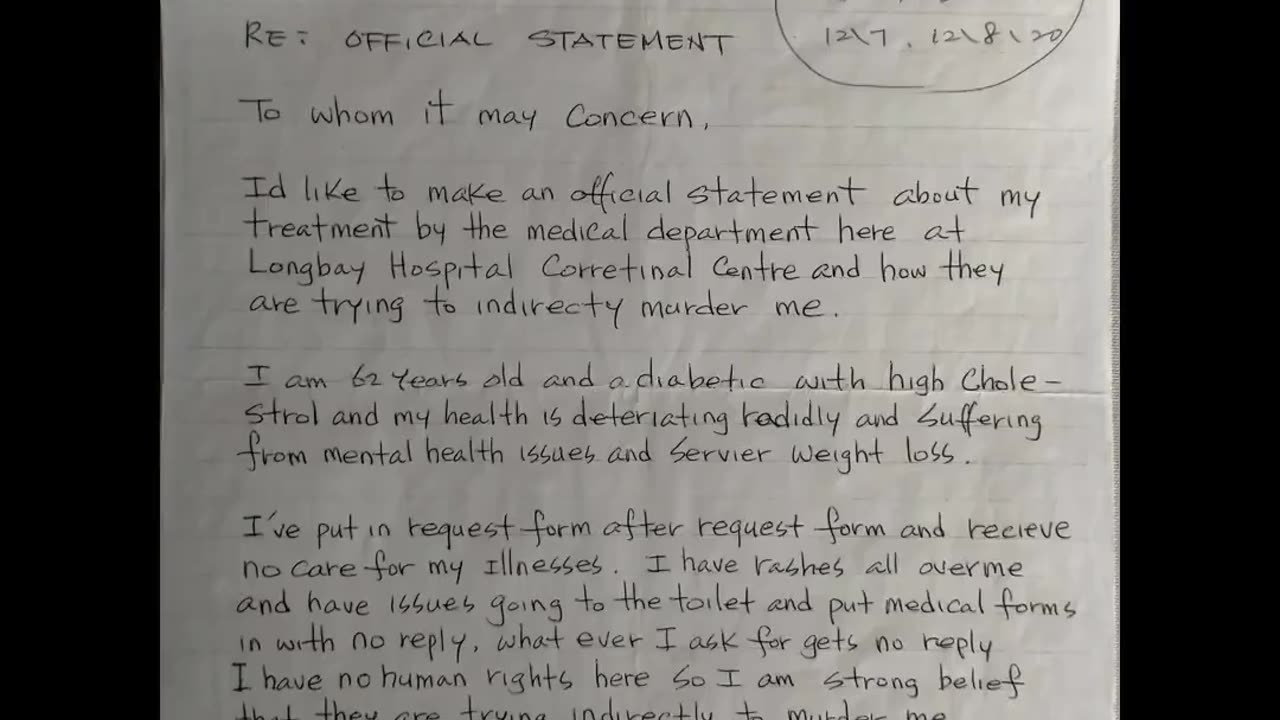 RE: OFFICIAL STATEMENT
12\7, 12\8\20
To whom it may Concern,
Id like to make an official statement about my
treatment by the medical department here at
Longbay Hospital Corretinal Centre and how they
are trying to indirecty murder me.
I am 62 years old and a diabetic with high Chole-
strol and my health is deteriating radidly and suffering
from mental health issues and servier weight loss.
I've put in request form after request form and recieve
no care for my Illnesses. I have rashes all over me
and have issues going to the toilet and put medical forms
in with no reply, what ever I ask for gets no reply
I have no human rights here so I am strong belief
that they are trying indirectly to murder me